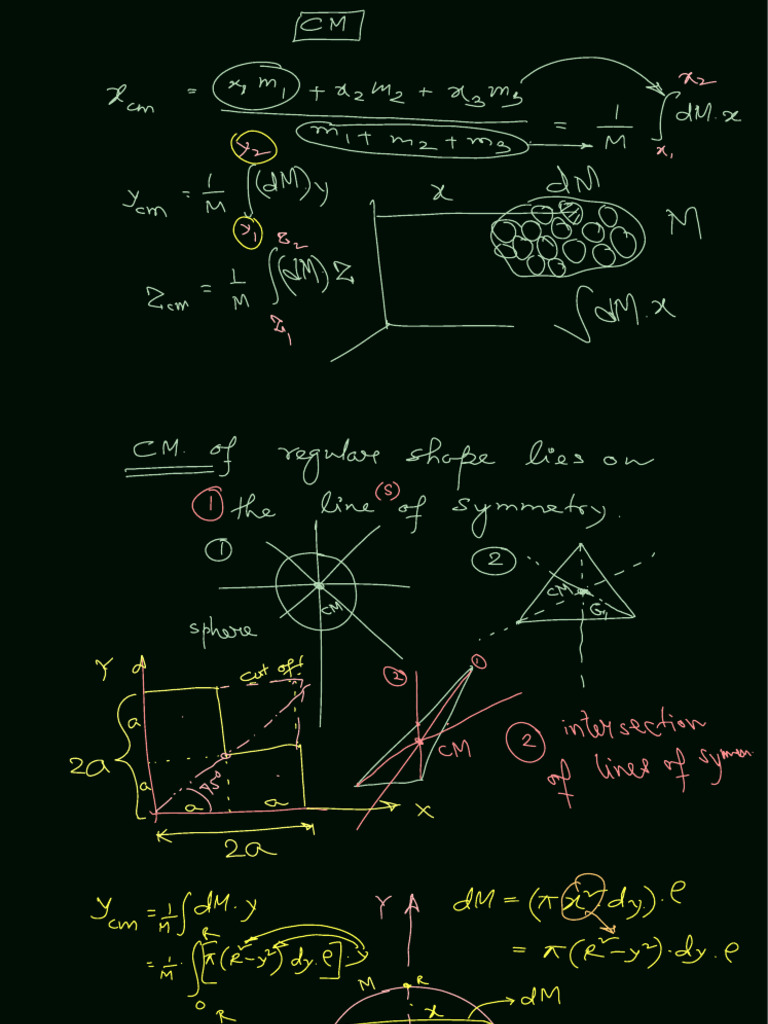 CM
x_cm = (x₁ m₁ + x₂ m₂ + x₃ m₃) / (m₁ + m₂ + m₃) = 1/M ∫_{x₁}^{x₂} dM. x
y_cm = 1/M ∫_{y₁}^{y₂} (dM). y
x dM
M
z_cm = 1/M ∫_{z₁}^{z₂} (dM) z
∫ dM. x
CM. of regular shape lies on
① the line(s) of symmetry.
①
②
CM
sphere
CM G
Y cut off
② ①
CM
② intersection
of lines of symm
a
2a
a
45°
a a
X
2a
y_cm = 1/M ∫ dM. y
= 1/M. ∫_0^R [π(R²-y²) dy. ρ]. y
R
Y
dM = (π x² dy). ρ
= π(R²-y²). dy. ρ
M R
x
dM